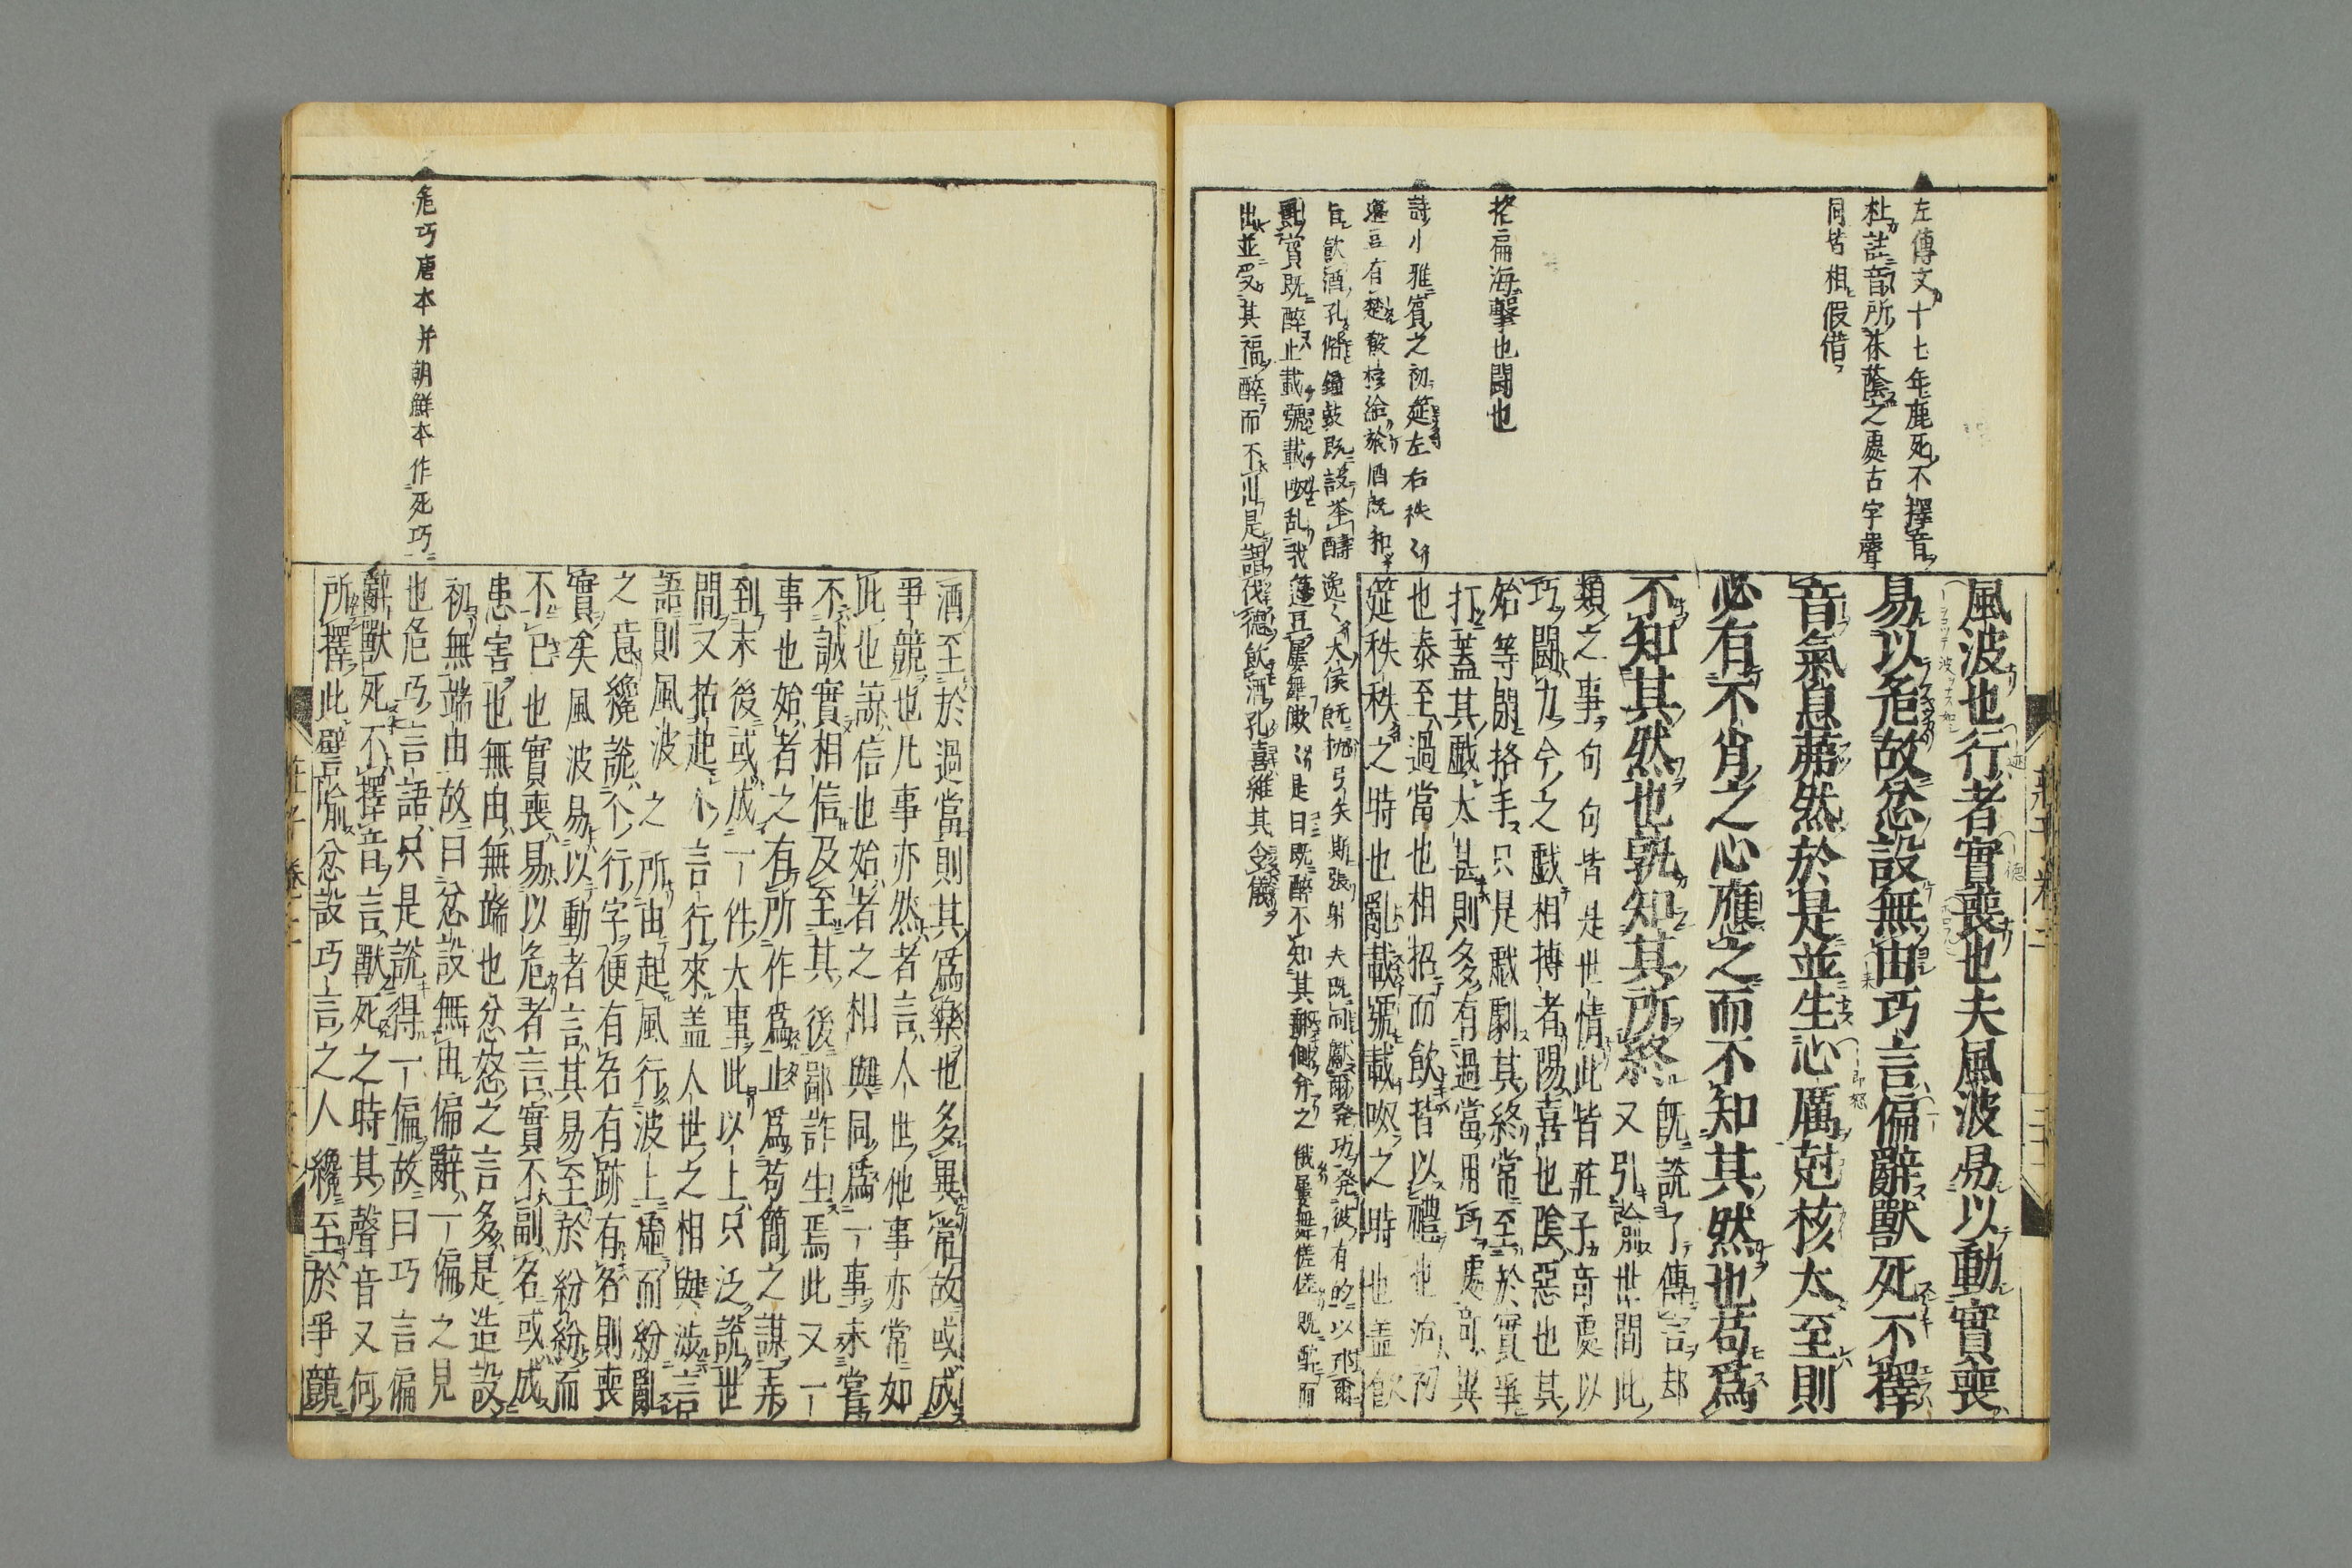 左傳文十七年鹿死不擇音
杜註音所茠蔭之處古字聲
同皆相假借
挌扁海擊也鬪也
詩小雅賓之初筵左右秩〻
籩豆有楚殽核維旅酒既和
旨飲酒孔偕鐘鼓既設舉醻逸〻大侯既抗弓矢斯張射夫既同獻爾發功發彼有的以祈爾
爵賓既醉止載號載呶乱我籩豆屢舞僛〻是曰既醉不知其郵側弁之俄屢舞傞傞既醉而
出並受其福醉而不出是謂伐德飲酒孔嘉維其令儀
風波也行者實喪也夫風波易以動實喪
易以危故忿設無由巧言偏辭獸死不擇
音氣息茀然於是並生心厲尅核太至則
必有不肖之心應之而不知其然也苟爲
不知其然也孰知其所終既說了傳言却
又引喻世間此
類之事句句皆是世情此皆莊子奇處以
巧鬪力今之戱相搏者陽喜也陰惡也其
始等閑挌手只是戱劇其終常至於實爭
打蓋其戱太甚則多有過當用巧處奇異
也泰至過當也相招而飲皆以禮也治初
筵秩秩之時也亂載號載呶之時也蓋飲
酒至於過當則其爲樂也多異常故或成
爭競也凡事亦然者言人世他事亦常如
此也諒信也始者之相與同爲一事未嘗
不誠實相信及至其後鄙詐生焉此又一
事也始者之有所作爲止爲苟簡之謀弄
到末後或成一件大事此以上只泛說世
間又拈起个言行來蓋人世之相與涉言
語則風波之所由起風行波上虛而紛亂
之意纔說个行字便有名有跡有名則喪
實矣風波易以動者言其易至於紛紛而
不已也實喪易以危者言實不副名或成
患害也無由無端也忿怒之言多是造設
初無端由故曰忿設無由偏辭一偏之見
也危巧言語只是說得一偏故曰巧言偏
辭獸死不擇音言獸死之時其聲音又何
所擇此譬喻忿設巧言之人纔至於爭競
危巧唐本并朝鮮本作死巧
莊子卷二